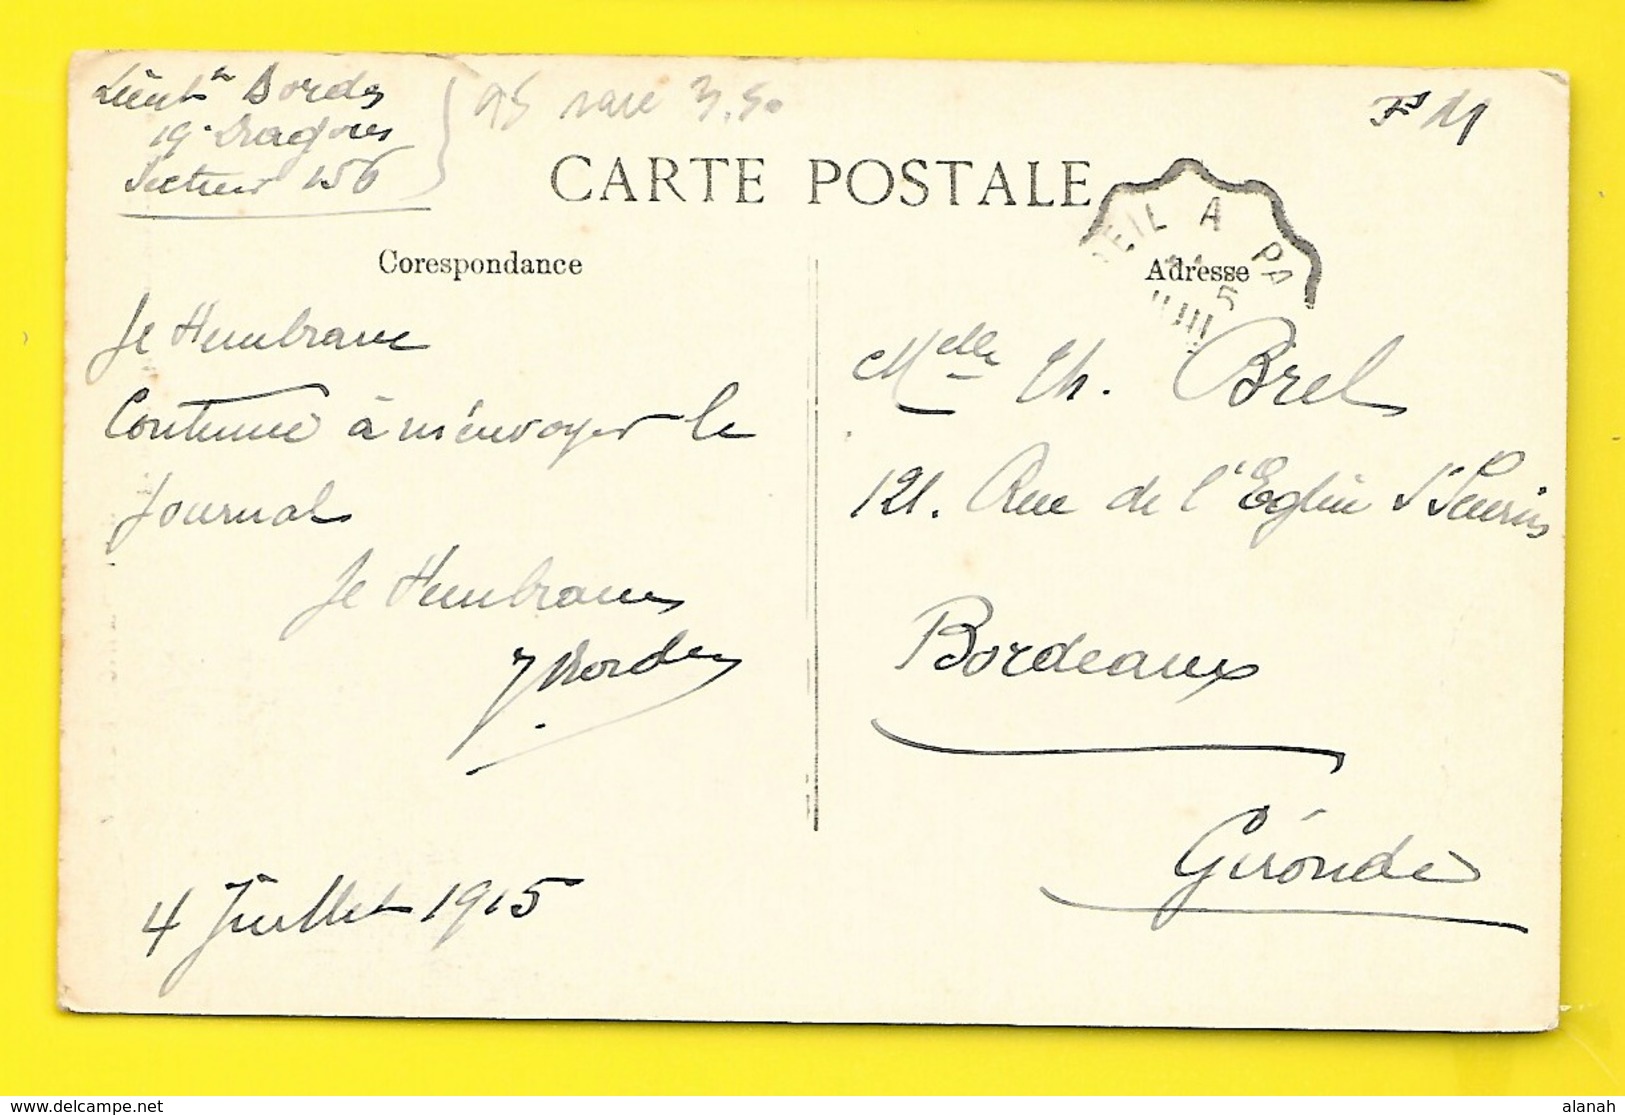 Lieut Bordes
19e Dragons
Secteur 156
95 rare 3.50
FM
CARTE POSTALE
CREIL A PA
5
Corespondance
Adresse
Je t'embrasse
Continue à m'envoyer le
journal
Je t'embrasse
J Bordes
4 Juillet 1915
Melle Th. Brel
121. Rue de l'Eglise St Seurin
Bordeaux
Gironde
www.delcampe.net
alanah